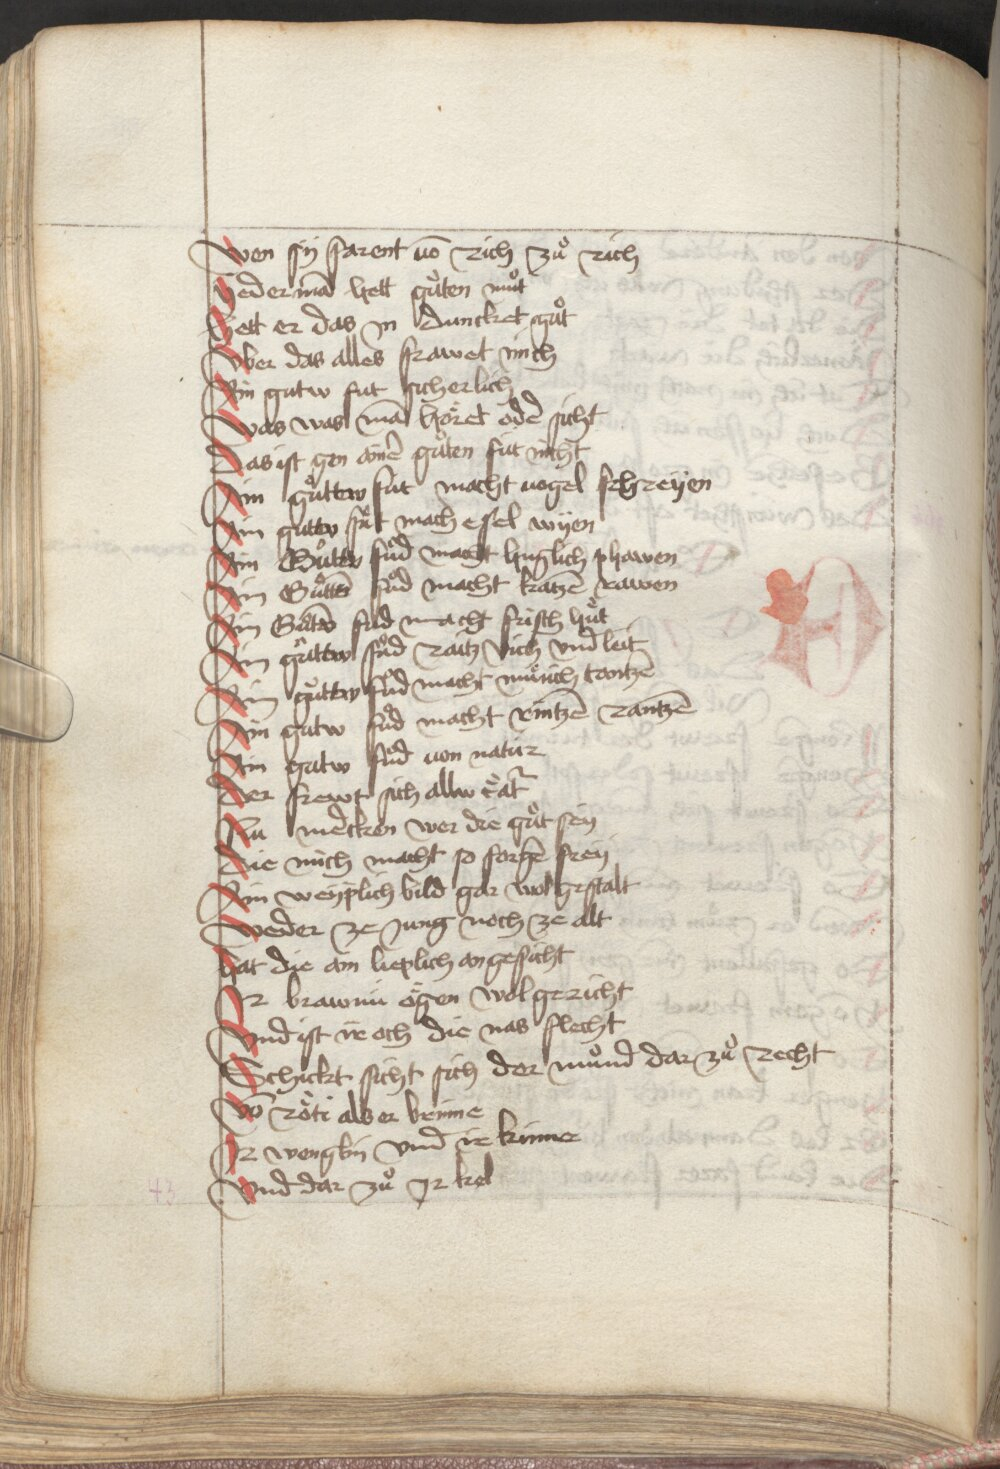 Wen sy farent vō rich zuͦ rich
Jedermā hett guͦten muͦt
Hett er das in duncket guͦt
Vber das alles frawet mich
Ain gutw fut sicherlich
Was was mā hoͤret oder sicht
Das ist gen ainē guͦten fut nicht
Ain guͦttw fut macht uogel schreyen
Ain guttw fuͦt mach esel wyen
Ain Guͦttw fuͦd macht huglich phawen
Ain Guͦttē fuͦd macht kratzē rawen
Ain Gutw fud macht frisch huͤt
Ain guͦttw fuͦd raitz vich vnd leit
Ain guͦttw fuͦd macht muͤnich
Ain gutw fuͦd macht rantzē
Ain gutw fuͦd von natur
Der frewt sich allw
Nu mercken wer die guͦt sey
Die mich macht so sorgē frey
Ain weyplich bild gar wol gestalt
Weder ze jung noch ze alt
Hat die ain lieplich angesicht
Ir brawnu oͤgen wol gericht
Vnd ist ir och die nas slecht
Schickt sicht sich der muͦnd dar zuͦ recht
Vō roͤti als er brinne
Ir wenglin vnd ir kinne
Vnd dar zuͦ yr kel
43